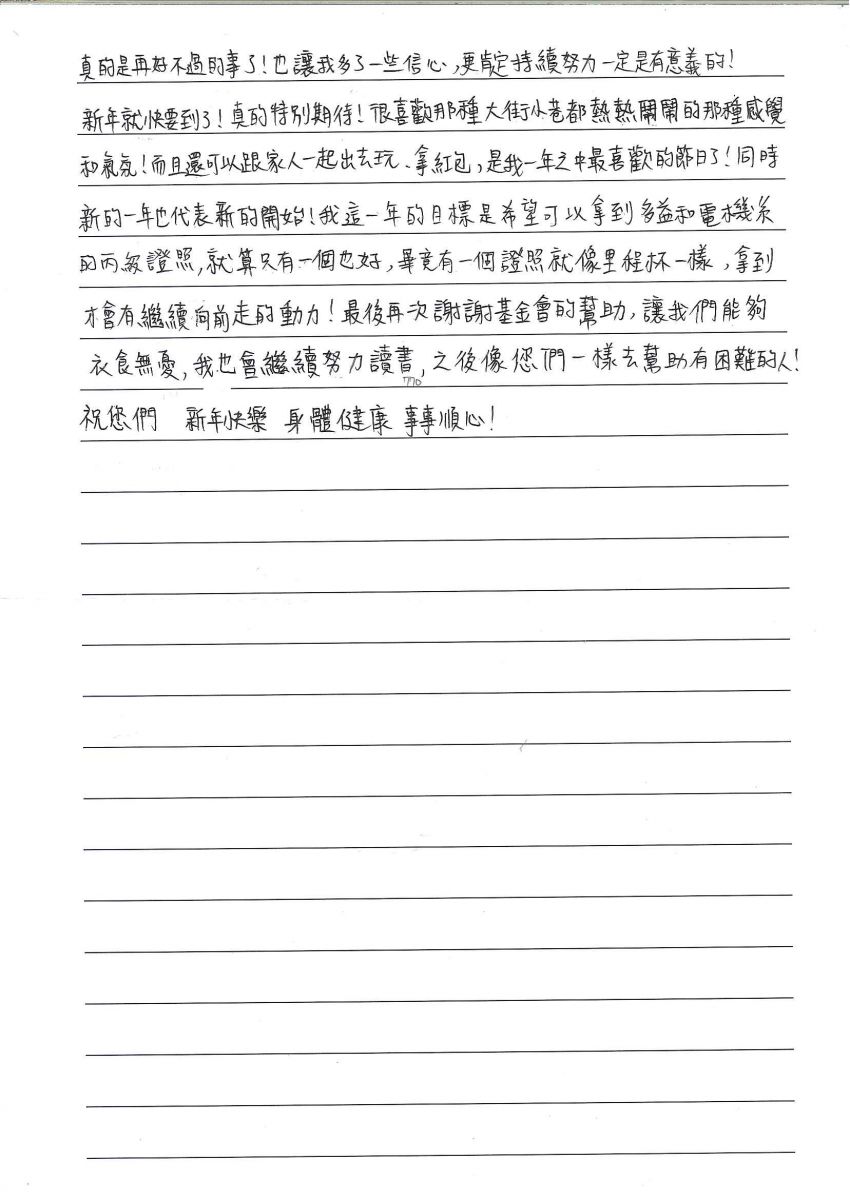 真的是再好不過的事了!也讓我多了一些信心,更肯定持續努力一定是有意義的!
新年就快要到了!真的特別期待!很喜歡那種大街小巷都熱熱鬧鬧的那種感覺
和氣氛!而且還可以跟家人一起出去玩、拿紅包,是我一年之中最喜歡的節日了!同時
新的一年也代表新的開始!我這一年的目標是希望可以拿到多益和電機系
的丙級證照,就算只有一個也好,畢竟有一個證照就像里程杯一樣,拿到
才會有繼續向前走的動力!最後再次謝謝基金會的幫助,讓我們能夠
衣食無憂,我也會繼續努力讀書,之後像您們一樣去幫助有困難的人!
770
祝您們 新年快樂 身體健康 事事順心!